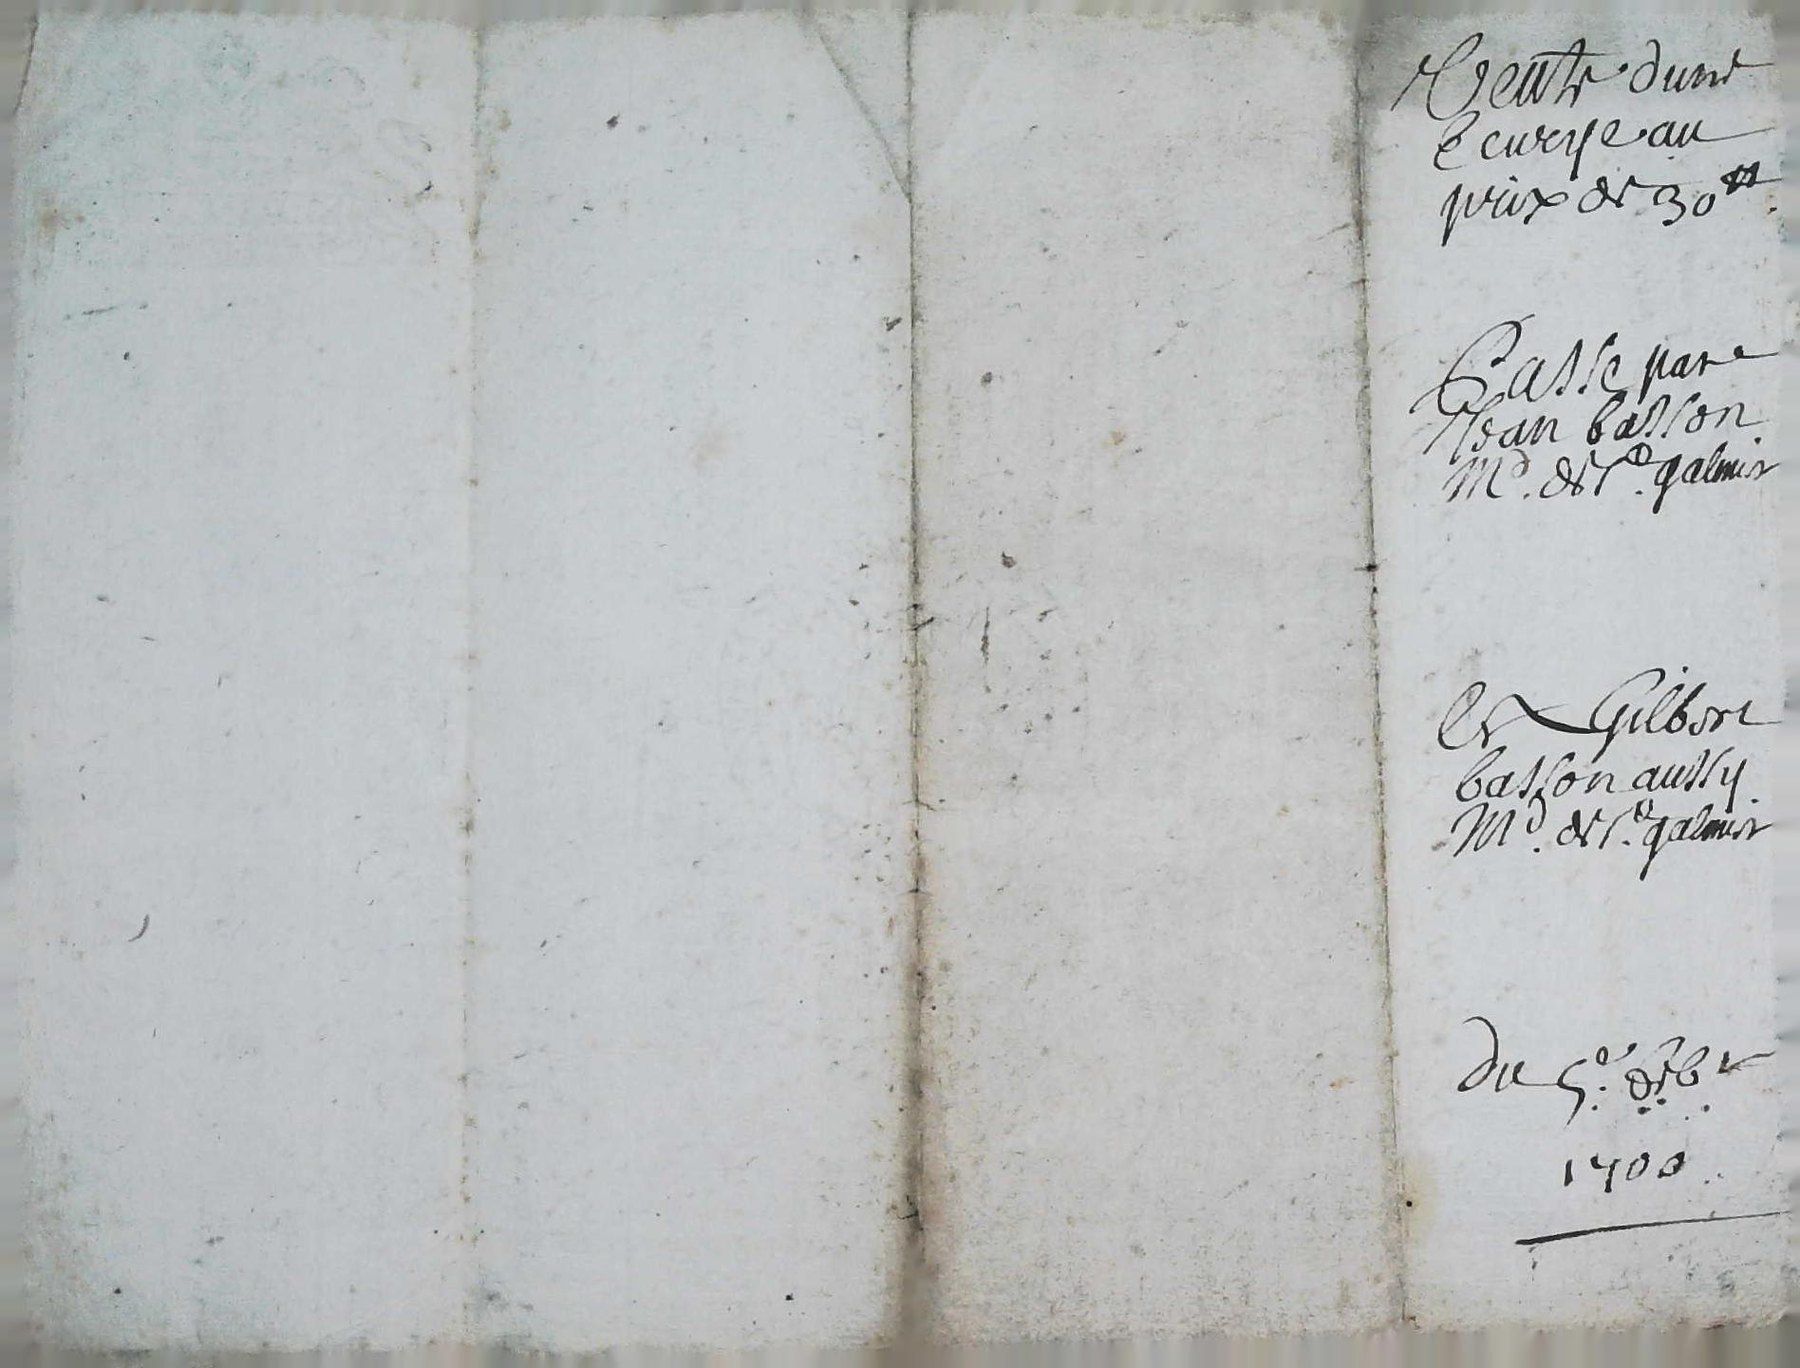 Vente dune
Ecurye au
prix de 30 ₶
Passe par
Jean basson
Md. de St. galmier
Et Gilbert
basson aussy
Md. de St. galmier
du 5e. xbre
1700